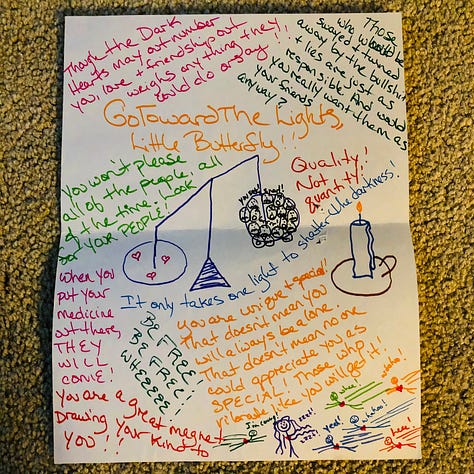 Though the Dark
Hearts may out number
you, love + friendship out
weighs any thing they
could do or say
Those
who would be
swayed or turned
away by the bullshit
+ lies are just as
responsible. And would
you really want them as
your friends
anyway?
Go Toward The Lights,
Little Butterfly!!
You won't please
all of the people, all
of the time. Look
for YOUR PEOPLE!
Quality!
Not
quantity!
It only takes one light to shatter the darkness!
When you
put your
medicine
out there,
THEY
WILL
COME!
BE FREE!
BE FREE!
WHEEEEE!
You are unique + special!
That doesn't mean you
will always be alone.
That doesn't mean no one
could appreciate you as
SPECIAL! Those who
vibrate like you will get it!
You are a great magnet
Drawing your kind to
YOU!!
I'm coming!
Yeah!